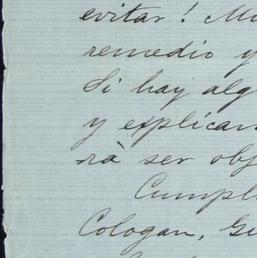 evitar! M
remedio y
Si hay alg
y explican
rà ser obj
Cumpl
Cologan, Gu